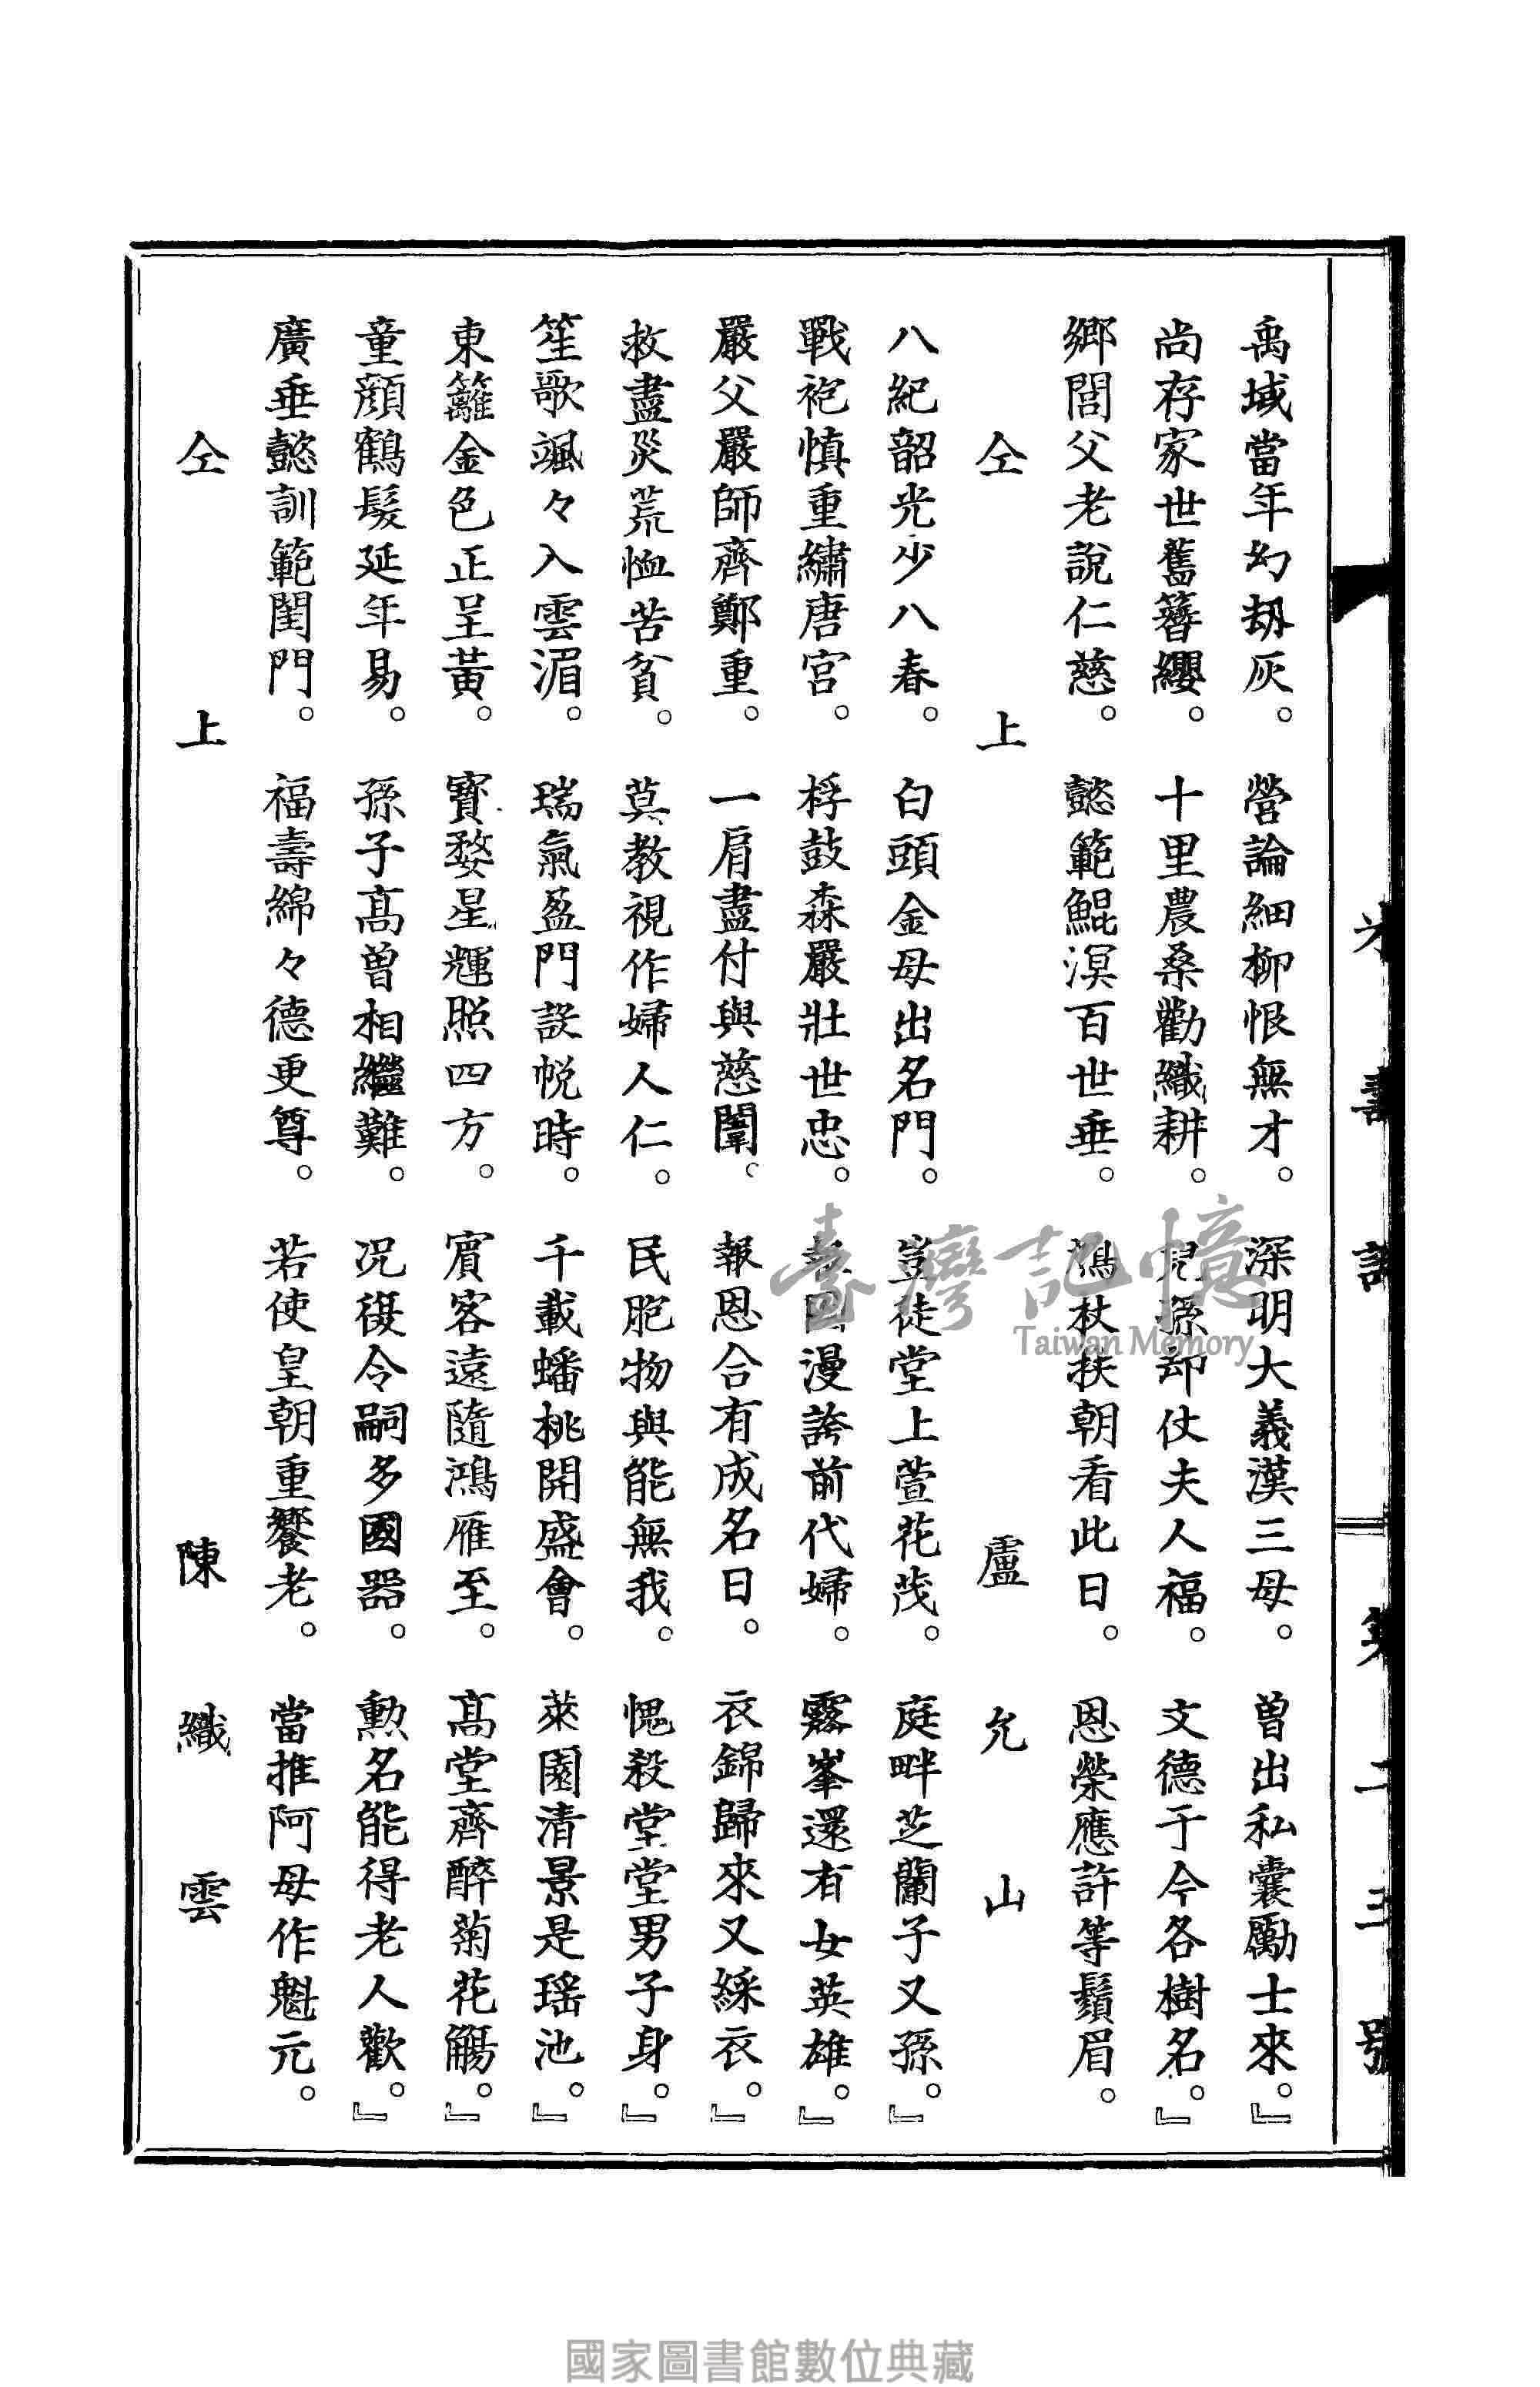 禹域當年幻劫灰。營論細柳恨無才。深明大義漢三母。曾出私囊勵士來。』
尚存家世舊簪纓。十里農桑勸織耕。兒孫却仗夫人福。文德于今各樹名。』
鄉閭父老說仁慈。懿範鯤溟百世垂。鳩杖扶朝看此日。恩榮應許等鬚眉。
仝上 盧允山
八紀韶光少八春。白頭金母出名門。豈徒堂上萱花茂。庭畔芝蘭子又孫。』
戰袍慎重繡唐宮。桴鼓森嚴壯世忠。報國漫誇前代婦。霧峯還有女英雄。』
嚴父嚴師齊鄭重。一肩盡付與慈闈。報恩合有成名日。衣錦歸來又綵衣。』
救盡災荒恤苦貧。莫教視作婦人仁。民胞物與能無我。愧殺堂堂男子身。』
笙歌颯々入雲湄。瑞氣盈門設帨時。千載蟠桃開盛會。萊園清景是瑤池。』
東籬金色正呈黃。寶婺星輝照四方。賓客遠隨鴻雁至。高堂齊醉菊花觴。』
童顏鶴髮延年易。孫子高曾相繼難。况復令嗣多國器。勳名能得老人歡。』
廣垂懿訓範閨門。福壽綿々德更尊。若使皇朝重饗老。當推阿母作魁元。
仝上 陳織雲
第二十三號
臺灣記憶
Taiwan Memory
國家圖書館數位典藏